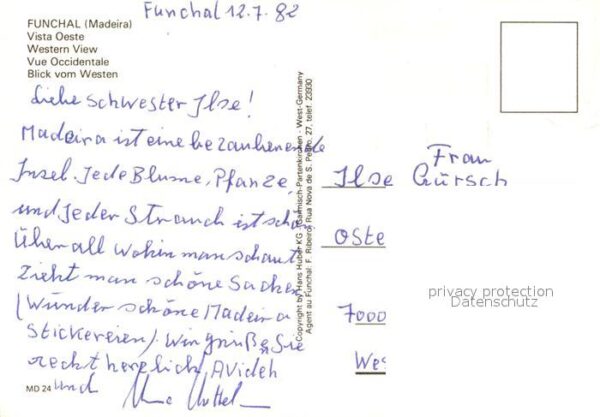 Funchal 12.7.82
FUNCHAL (Madeira)
Vista Oeste
Western View
Vue Occidentale
Blick vom Westen
Liebe Schwester Ilse!
Madeira ist eine bezaubernde
Insel. Jede Blume, Pflanze,
und jeder Strauch ist schön
Über all wohin man schaut
zieht man schöne Sachen
(Wunder schöne Madeira
Stickereien). Wir grüße Sie
recht herzlich,
und
MD 24
Copyright by Hans Huber KG Garmisch-Partenkirchen - West-Germany
Agent au Funchal: F. Ribeiro, Rua Nova de S. Pedro, 27, telef. 23930
Frau
Ilse Gürsch
Oste
7000
Wes
privacy protection
Datenschutz